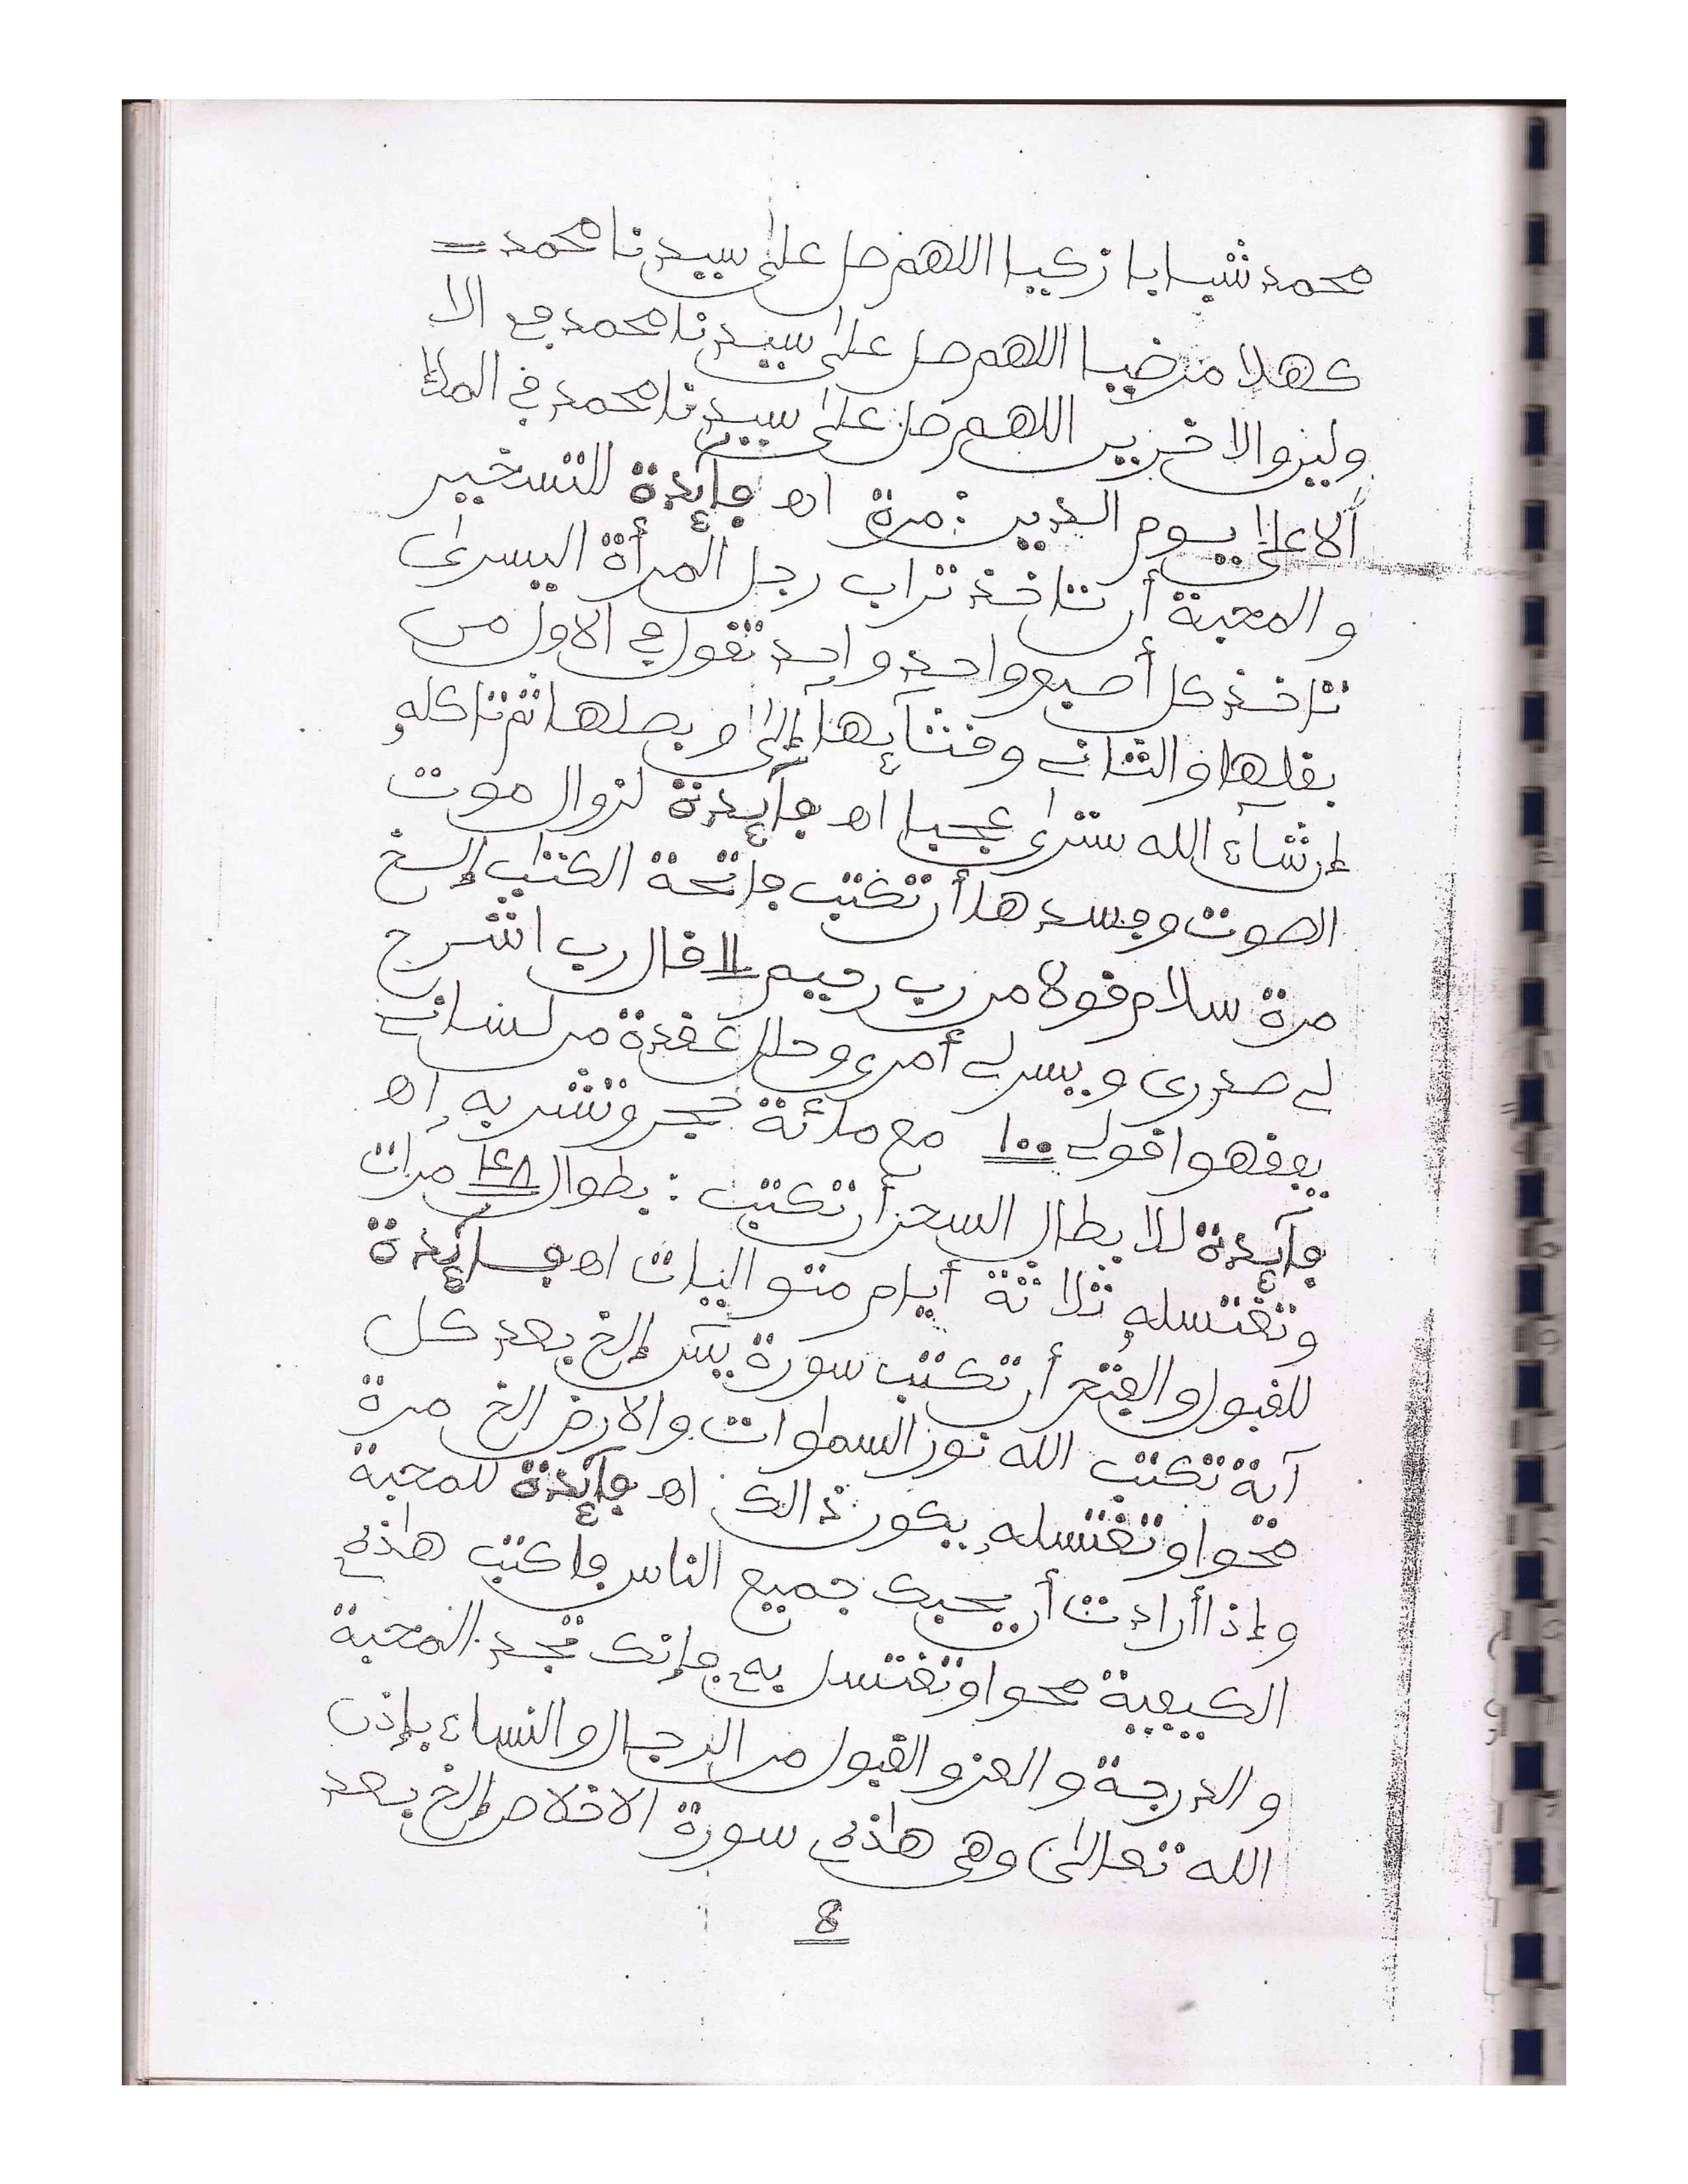 محمد شبابا زكيا اللهم صل على سيدنا محمد =
كهلا مرضيا اللهم صل على سيدنا محمد في الا
ولين والاخرين اللهم صل على سيدنا محمد في الملإ
الاعلى يوم الدين : مرة اه فآئدة للتسخير
والمحبة أن تاخذ تراب رجل المرأة اليسرى
تاخذ كل أصبع واحد واحد تقول في الاول من
بقلها والثاني وقثآئها إلى وبصلها ثم تاكله
إن شاء الله سترى عجبا اه فآئدة لزوال موت
الصوت وفسدها أن تكتب فاتحة الكتاب إلخ
مرة سلام قولا من رب رحيم 11 قال رب اشرح
لي صدري ويسرلي أمري وحلل عقدة من لساني
يفقهوا قولي 100 مع مائة حجر وتشربه اه
فآئدة للابطال السحر أن تكتب : بطوال مرات
وتغتسله ثلاثة أيام متواليات اه فآئدة
للقبول والفتح أن تكتب سورة يس إلخ بعد كل
آية تكتب الله نور السماوات والارض الخ مرة
محوا وتغتسله يكون ذالك اه فآئدة للمحبة
وإذا أراءت أن يحبك جميع الناس فاكتب هاذه
الكيفية محوا وتغتسل به فإنك تجد المحبة
والدرجة والعز والقبول من الرجال والنساء بإذن
الله تعالى وهي هاذه سورة الاخلاص إلخ بعد
8